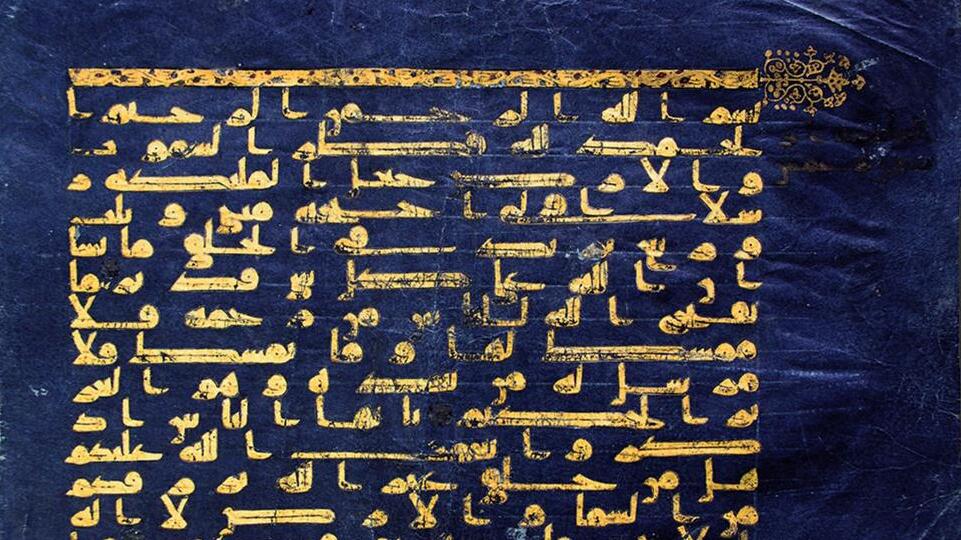 بسم الله الرحمن الرحيم ا
لحمد لله فطر السموت
والارض جعل الملئكة ر
سلا اولى اجنحة مثنى وثلث
وربع يزيد فى الخلق ما يشا
ان الله على كل شى قدير ما
يفتح الله للناس من رحمة فلا
ممسك لها وما يمسك فلا
مرسل له من بعده وهو العز
يز الحكيم يايها الناس اذ
كروا نعمت الله عليكم
هل من خلق غير الله يرزقكم
من السما والارض لا اله